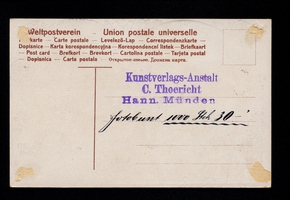 Weltpostverein Union postale universelle
— Carte postale — Levelező-Lap — Correspondenzkarte
Dopisnice — Karta korespondencyjna — Korespondencní lístek — Briefkaart
— Post card — Brefkort — Brevkort — Cartolina postale — Tarjeta postal
Dopisnica — Carta postala — Открытое письмо. Дописна карта.
Kunstverlags-Anstalt
C. Thoericht
Hann. Münden
1000 30 -